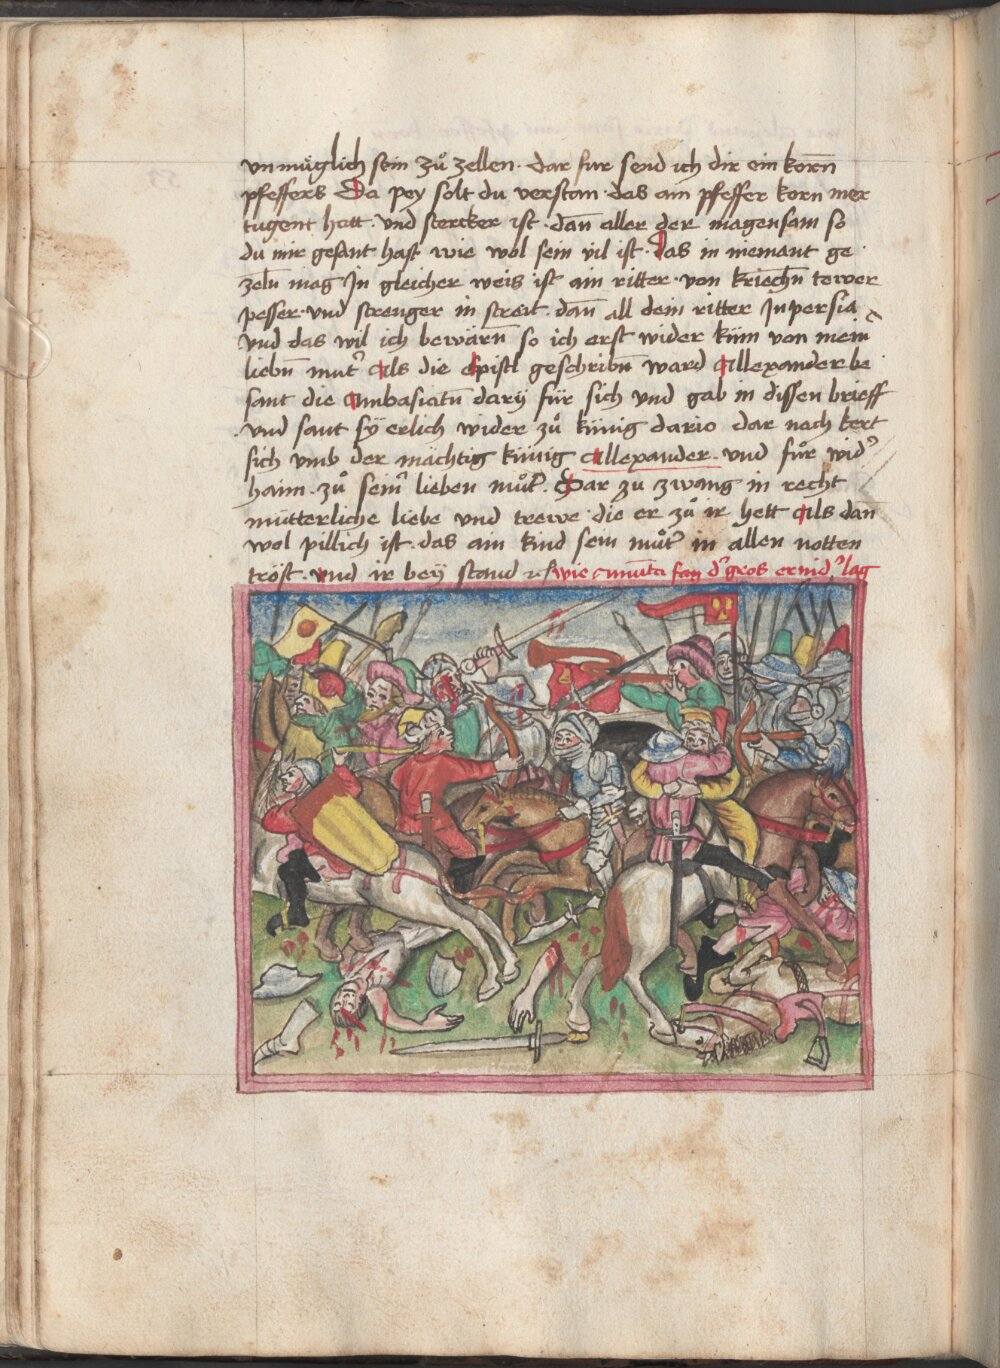 vnmüglich sein zuͦ zellen · dar fur send ich dir ein korn
pfeffers Da pey solt du verstan · das ain pfeffer korn mer
tugent hatt · vnd stercker ist · dan̄ aller der magensam so
du mir gesant hast wie wol sein vil ist · das in niemant ge
zeln̄ mag In gleicher weis ist ain ritter · von kriechn̄ tewer
pesser · vnd strenger in streit · dan̄ all dein ritter In persia
vnd das wil ich bewärn̄ so ich erst wider küm von meiner
liebn̄ mut̓ Als die Epistl geschribn̄ ward Allexander be
sant die Ambasiatn̄ darij für sich vnd gab in dissen brieff
vnd sant sÿ erlich wider zuͦ künig dario dar nach kert
sich vmb der mächtig künig Allexander · vnd fuͦr wid̓
haim · zuͦ sein̓ lieben muͦt̓ · Dar zu zwang in recht
mütterliche liebe vnd trewe · die er zuͦ ir hett Als dan
wol pillich ist · das ain kind sein muͦt̓ in allen notten
tröst · vnd ir beÿ stand wie amunta fan d̓ gros ernid̓ lag